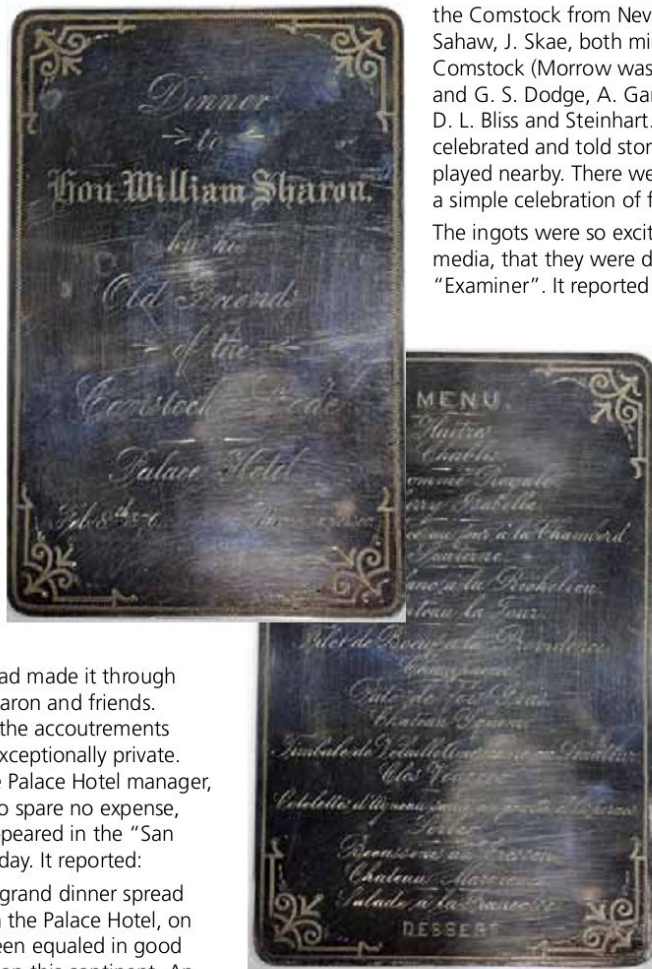 the Comstock from Nev
Sahaw, J. Skae, both mi
Comstock (Morrow was
and G. S. Dodge, A. Gar
D. L. Bliss and Steinhart.
celebrated and told stor
played nearby. There we
a simple celebration of f
The ingots were so excit
media, that they were d
“Examiner”. It reported
Dinner
to
Hon. William Sharon.
by his
Old Friends
of the
Comstock Lode
Palace Hotel
Feb 8th
MENU.
Huitres
Chablis
Royale
Isabella
à la Chambord
Sauterne
a la Richelieu
la Tour.
Filet de Boeuf a la Providence
Pate de Foie Gras
Chateau Yquem
Timbale de Volaille
Clos
Cotelettes d'Agneau
Sorbet
Chateau Margaux
Salade, a la Française
DESSERT
ad made it through
aron and friends.
the accoutrements
xceptionally private.
e Palace Hotel manager,
o spare no expense,
ppeared in the “San
day. It reported:
grand dinner spread
n the Palace Hotel, on
een equaled in good
on this continent. An